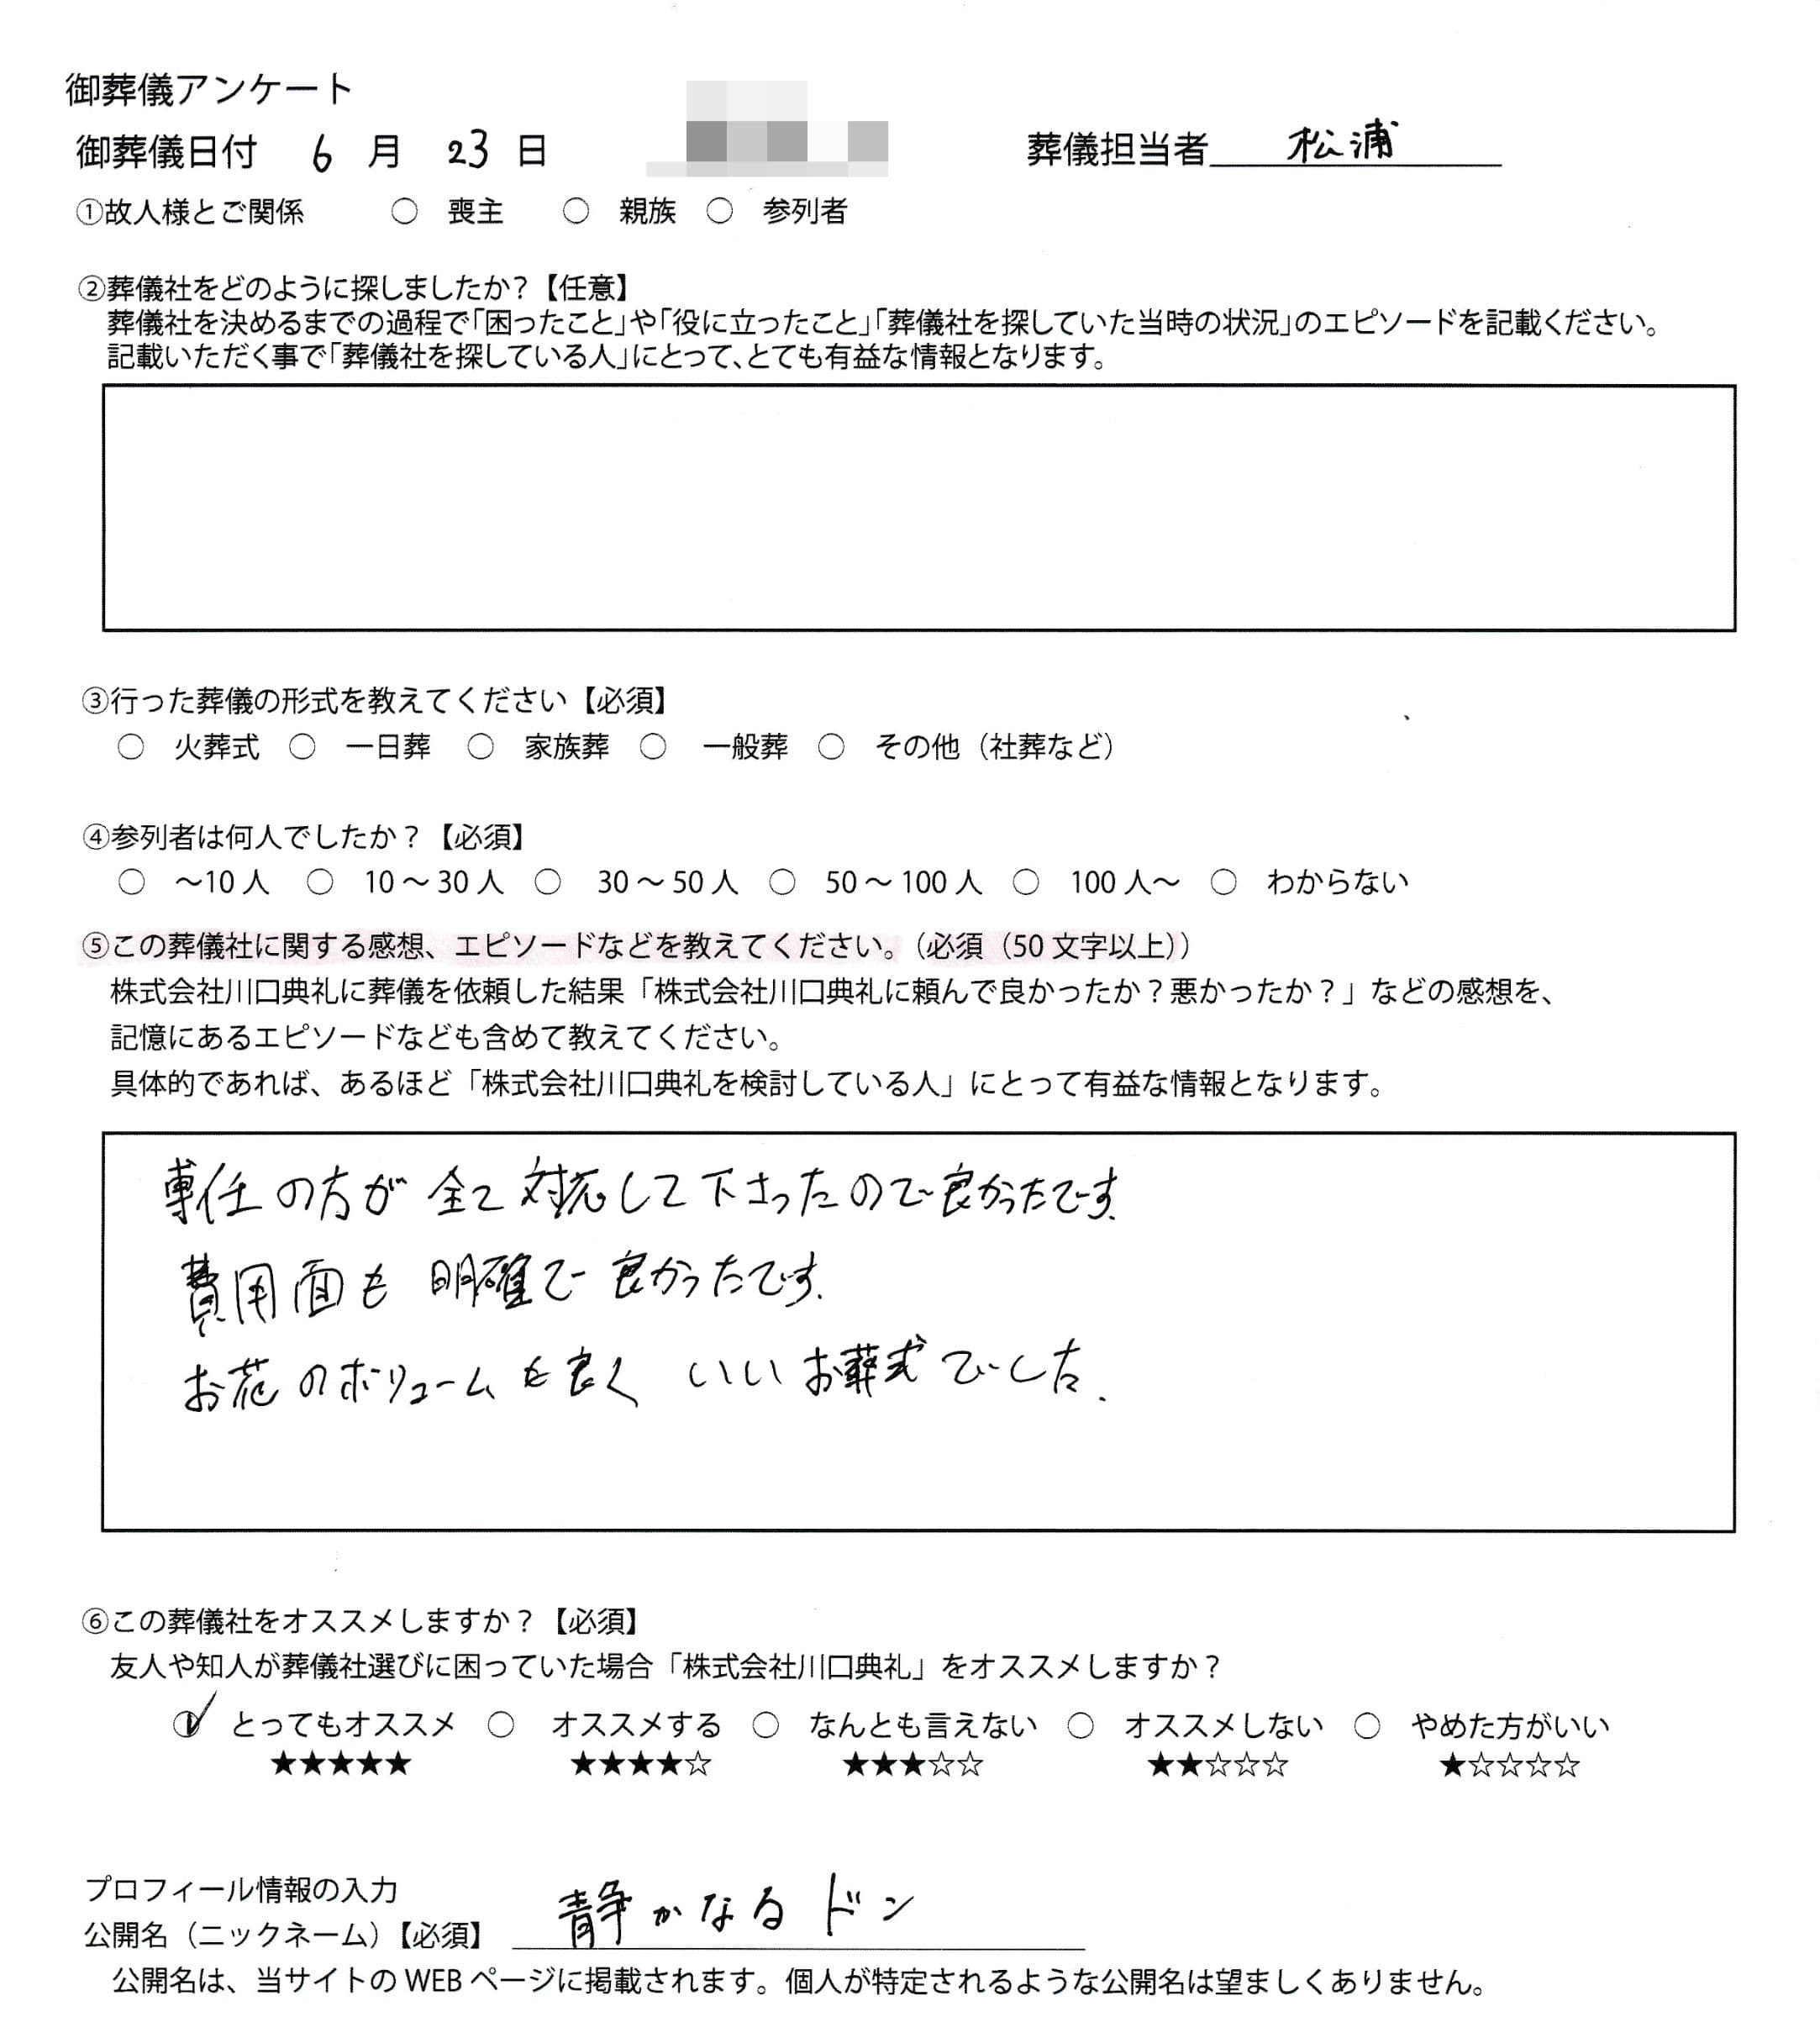 御葬儀アンケート
御葬儀日付 6 月 23 日 葬儀担当者 松浦
①故人様とご関係 ○ 喪主 ○ 親族 ○ 参列者
②葬儀社をどのように探しましたか？【任意】
葬儀社を決めるまでの過程で「困ったこと」や「役に立ったこと」「葬儀社を探していた当時の状況」のエピソードを記載ください。
記載いただく事で「葬儀社を探している人」にとって、とても有益な情報となります。
③行った葬儀の形式を教えてください【必須】
○ 火葬式 ○ 一日葬 ○ 家族葬 ○ 一般葬 ○ その他（社葬など）
④参列者は何人でしたか？【必須】
○ ～10 人 ○ 10 ～ 30 人 ○ 30 ～ 50 人 ○ 50 ～ 100 人 ○ 100 人～ ○ わからない
⑤この葬儀社に関する感想、エピソードなどを教えてください。（必須（50 文字以上））
株式会社川口典礼に葬儀を依頼した結果「株式会社川口典礼に頼んで良かったか？悪かったか？」などの感想を、
記憶にあるエピソードなども含めて教えてください。
具体的であれば、あるほど「株式会社川口典礼を検討している人」にとって有益な情報となります。
専任の方が全て対応して下さったので良かったです.
費用面も明確で良かったです.
お花のボリュームも良く いいお葬式でした.
⑥この葬儀社をオススメしますか？【必須】
友人や知人が葬儀社選びに困っていた場合「株式会社川口典礼」をオススメしますか？
✓ とってもオススメ ○ オススメする ○ なんとも言えない ○ オススメしない ○ やめた方がいい
★★★★★ ★★★★☆ ★★★☆☆ ★★☆☆☆ ★☆☆☆☆
プロフィール情報の入力
公開名（ニックネーム）【必須】 静かなるドン
公開名は、当サイトの WEB ページに掲載されます。個人が特定されるような公開名は望ましくありません。